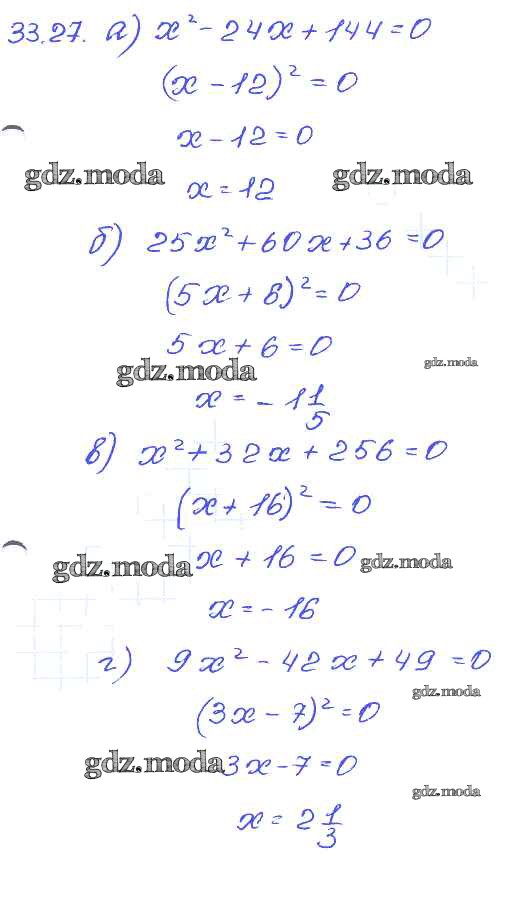 33.27. а) x² - 24x + 144 = 0
(x - 12)² = 0
x - 12 = 0
gdz.moda gdz.moda
x = 12
б) 25x² + 60x + 36 = 0
(5x + 6)² = 0
5x + 6 = 0
gdz.moda gdz.moda
x = - 1 1/5
в) x² + 32x + 256 = 0
(x + 16)² = 0
gdz.moda x + 16 = 0 gdz.moda
x = - 16
г) 9x² - 42x + 49 = 0
gdz.moda
(3x - 7)² = 0
gdz.moda 3x - 7 = 0
gdz.moda
x = 2 1/3